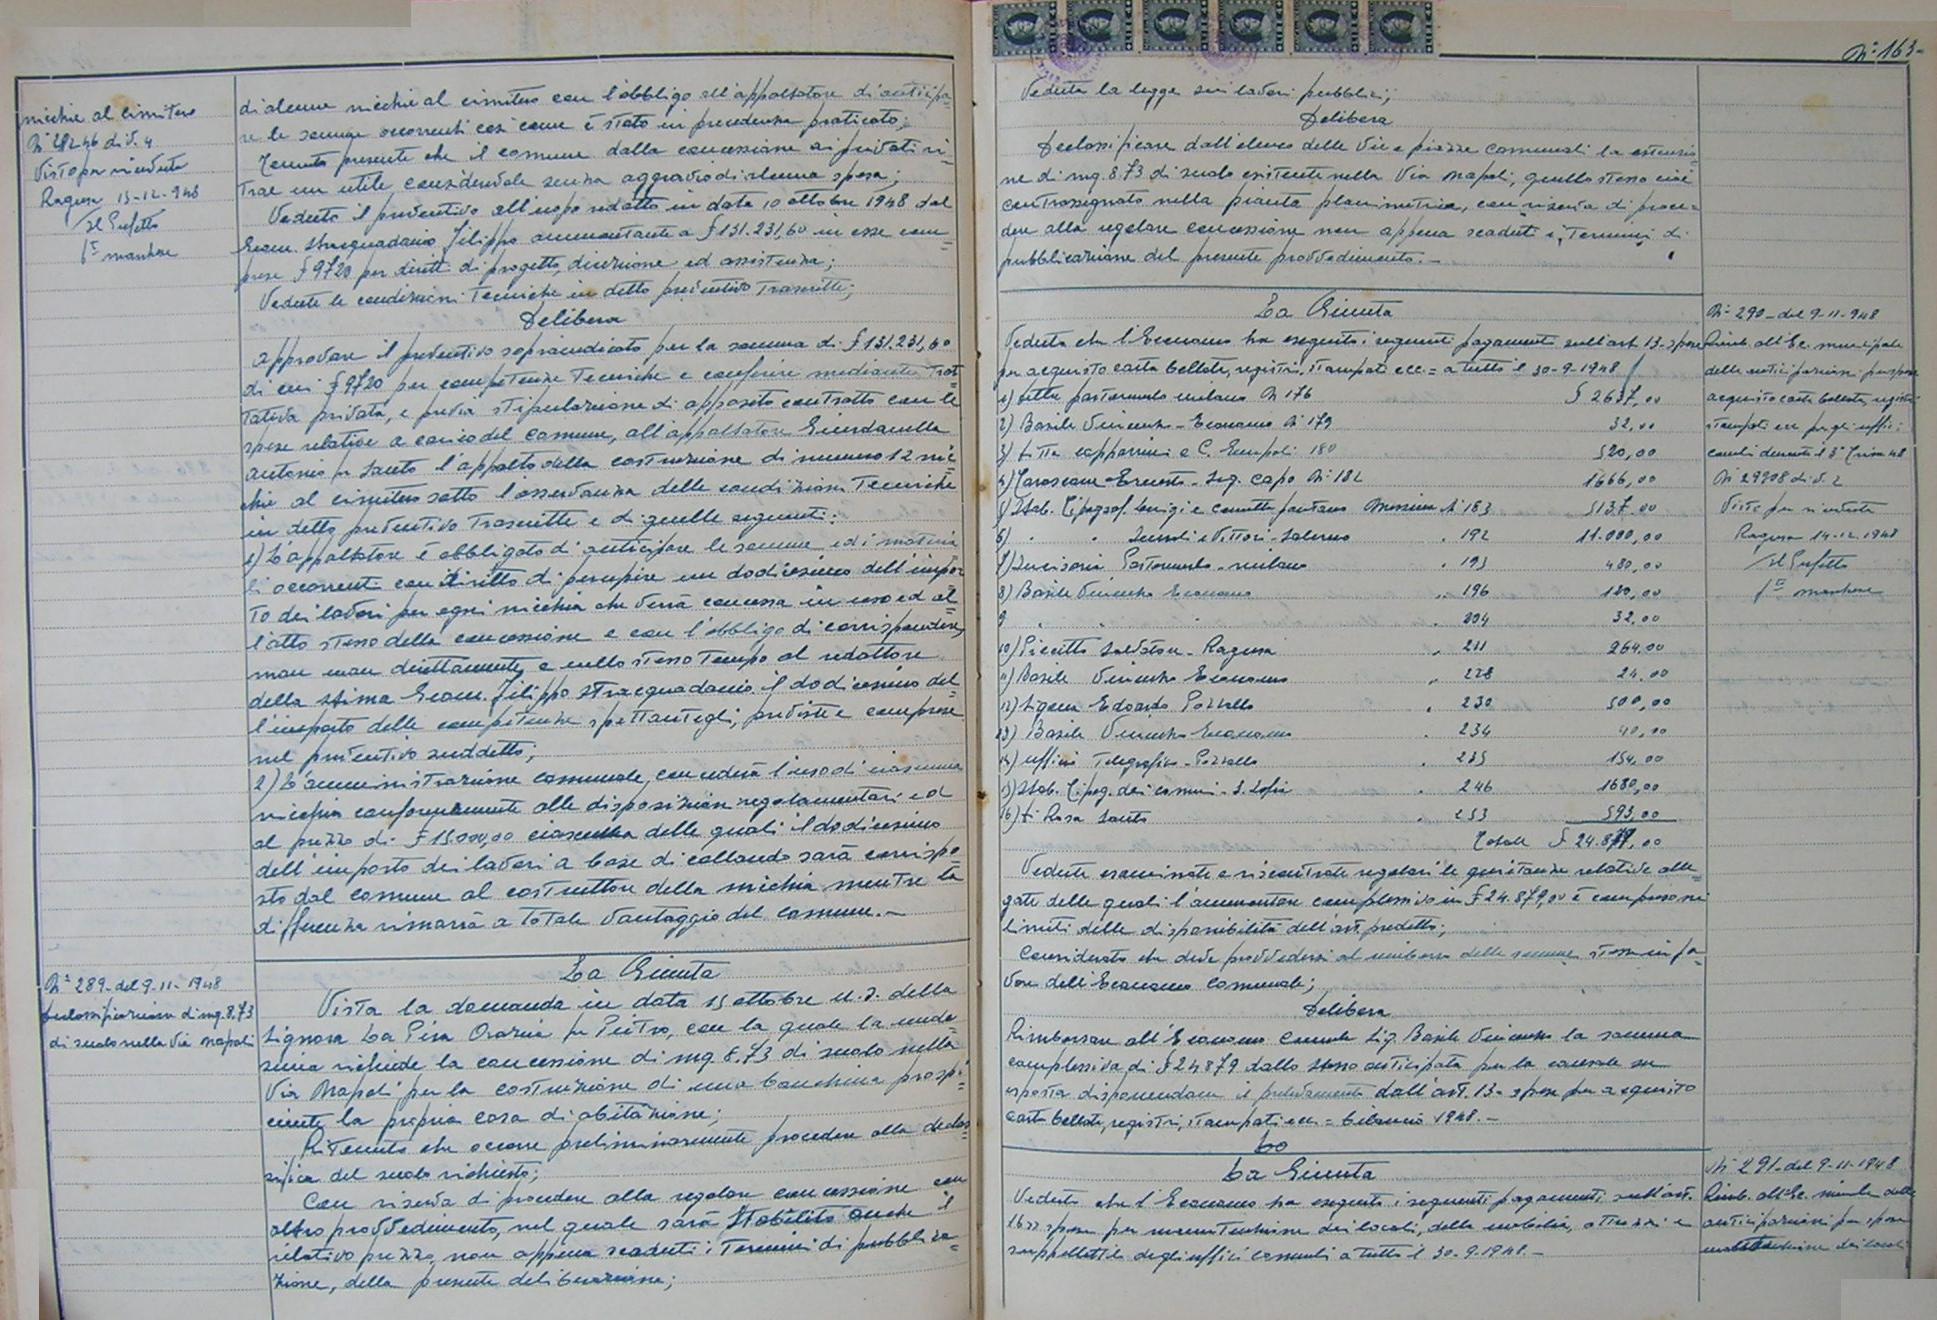 nicchie al cimitero
N° 28246 div. 4
Visto per ricevuta
Ragusa 15-12-948
Il Prefetto
di alcune nicchie al cimitero con l'obbligo all'appaltatore di anticipa-
re le somme occorrenti così come è stato in precedenza praticato;
Tenuto presente che il comune dalla concessione ai privati ri-
trae un utile considerevole senza aggravio di alcuna spesa;
Veduto il preventivo all'uopo redatto in data 10 ottobre 1948 dal
Geom. Stracquadanio Filippo ammontante a £ 131.231,60 in esse com-
prese £ 9720 per diritti di progetto, direzione ed assistenza;
Vedute le condizioni tecniche in detto preventivo trascritte;
Delibera
Approvare il preventivo sopraindicato per la somma di £ 131.231,60
di cui £ 9720 per competenze tecniche e conferire mediante trat-
tativa privata, e previa stipulazione di apposito contratto con le
spese relative a carico del comune, all'appaltatore Giurdanella
Antonio fu Santo l'appalto della costruzione di numero 12 nic-
chie al cimitero sotto l'osservanza delle condizioni tecniche
in detto preventivo trascritte e di quelle seguenti:
1) L'appaltatore è obbligato di anticipare le somme ed i materia-
li occorrenti con diritto di percepire un dodicesimo dell'impor-
to dei lavori per ogni nicchia che verrà concessa in uso ed al-
l'atto stesso della concessione e con l'obbligo di corrispondere,
man mano direttamente, e nello stesso tempo al redattore
della stima Geom. Filippo Stracquadanio il dodicesimo del-
l'importo delle competenze spettantegli, previste e comprese
nel preventivo suddetto;
2) L'amministrazione comunale, concederà l'uso di ciascuna
nicchia conformemente alle disposizioni regolamentari ed
al prezzo di £ 15.000,00 ciascuna delle quali il dodicesimo
dell'importo dei lavori a base di collaudo sarà corrispo-
sto dal comune al costruttore della nicchia mentre la
differenza rimarrà a totale vantaggio del comune.-
N° 289 del 9-11-1948
Declassificazione di mq. 8.73
di suolo nella Via Napoli
La Giunta
Vista la domanda in data 15 ottobre u.s. della
Signora La Pira Orazia fu Pietro, con la quale la mede-
sima richiede la concessione di mq 8.73 di suolo nella
Via Napoli per la costruzione di una banchina prospi-
ciente la propria casa di abitazione;
Ritenuto che occorre preliminarmente procedere alla declas-
sifica del suolo richiesto;
Con riserva di procedere alla regolare concessione con
altro provvedimento, nel quale sarà stabilito anche il
relativo prezzo, non appena scaduti i termini di pubblica-
zione, della presente deliberazione;
N° 163-
Veduta la legge sui lavori pubblici;
Delibera
Declassificare dall'elenco delle Vie e piazze comunali la estensio-
ne di mq. 8.73 di suolo esistente nella Via Napoli, quello stesso cioè
contrassegnato nella pianta planimetrica, con riserva di proce-
dere alla regolare concessione non appena scaduti i termini di
pubblicazione del presente provvedimento.-
La Giunta
Veduto che l'Economo ha eseguito i seguenti pagamenti sull'art. 13- spese
per acquisto carta bollata, registri, stampati ecc.= a tutto il 30-9-1948
1) Ditta pastormerlo milano N 176 £ 2637,00
2) Basile Vincenzo - Economo N° 179 32,00
3) Ditta Capparrini e C. Empoli 180 520,00
4) Economo - Seg. Capo N° 182 1666,00
5) Stab. Tipograf. Luigi e Messina N° 183 5137,00
6) " " Vittori - Salerno " 192 11.000,00
7) Pastormerlo - milano " 193 480,00
8) Basile Vincenzo Economo " 196 120,00
9 " " " " 204 32,00
10) Piccitto Salvatore - Ragusa " 211 264,00
11) Basile Vincenzo Economo " 228 24,00
12) Ligura Edoardo Pozzallo " 230 500,00
13) Basile Vincenzo Economo " 234 40,00
14) Ufficio Telegrafico - Pozzallo " 235 154,00
15) Stab. Tipog. dei comuni - S. Sofia " 246 1680,00
16) Di Rosa Santo " 253 593,00
Totale £ 24.879,00
Vedute esaminate e riscontrate regolari le quietanze relative alle-
gate delle quali l'ammontare complessivo in £ 24.879,00 è compreso nei
limiti delle disponibilità dell'art. predetto;
Considerato che deve provvedersi al rimborso delle somme stesse in fa-
vore dell'Economo Comunale;
Delibera
Rimborsare all'Economo Comunale Sig. Basile Vincenzo la somma
complessiva di £ 24879 dallo stesso anticipata per la causale su
esposta disponendone il prelevamento dall'art. 13- spese per acquisto
carta bollata, registri, stampati ecc.= bilancio 1948.-
N° 290- del 9-11-948
Rimb. all'Ec. municipale
delle anticipazioni per spese
acquisto carta bollata, registri
stampati ecc per gli uffici
comunali durante il 3° Trim 48
N° 29908 div. 2
Visto per ricevuta
Ragusa 14-12-1948
Il Prefetto
La Giunta
Veduto che l'Economo ha eseguito i seguenti pagamenti sull'art.
16 = spese per manutenzione dei locali, della mobilia, attrezzi e
suppellettili degli uffici comunali a tutto il 30-9-1948.-
N° 291- del 9-11-1948
Rimb. all'Ec. delle
anticipazioni per spese
manutenzione dei locali